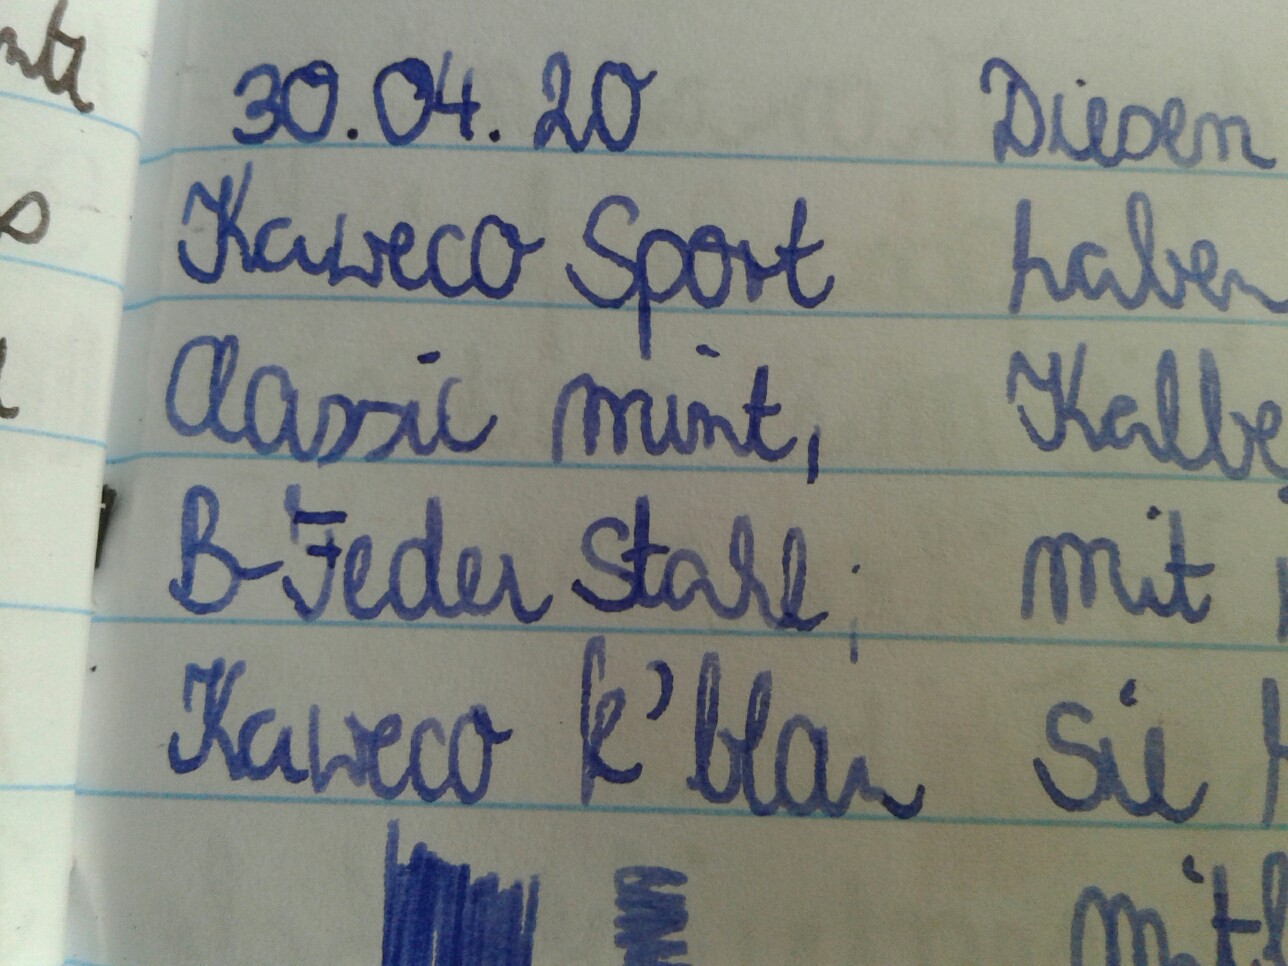 30.04.20
Kaweco Sport
Classic mint,
B-Feder Stahl;
Kaweco k'blau
Diesen
haben
mit
Sie